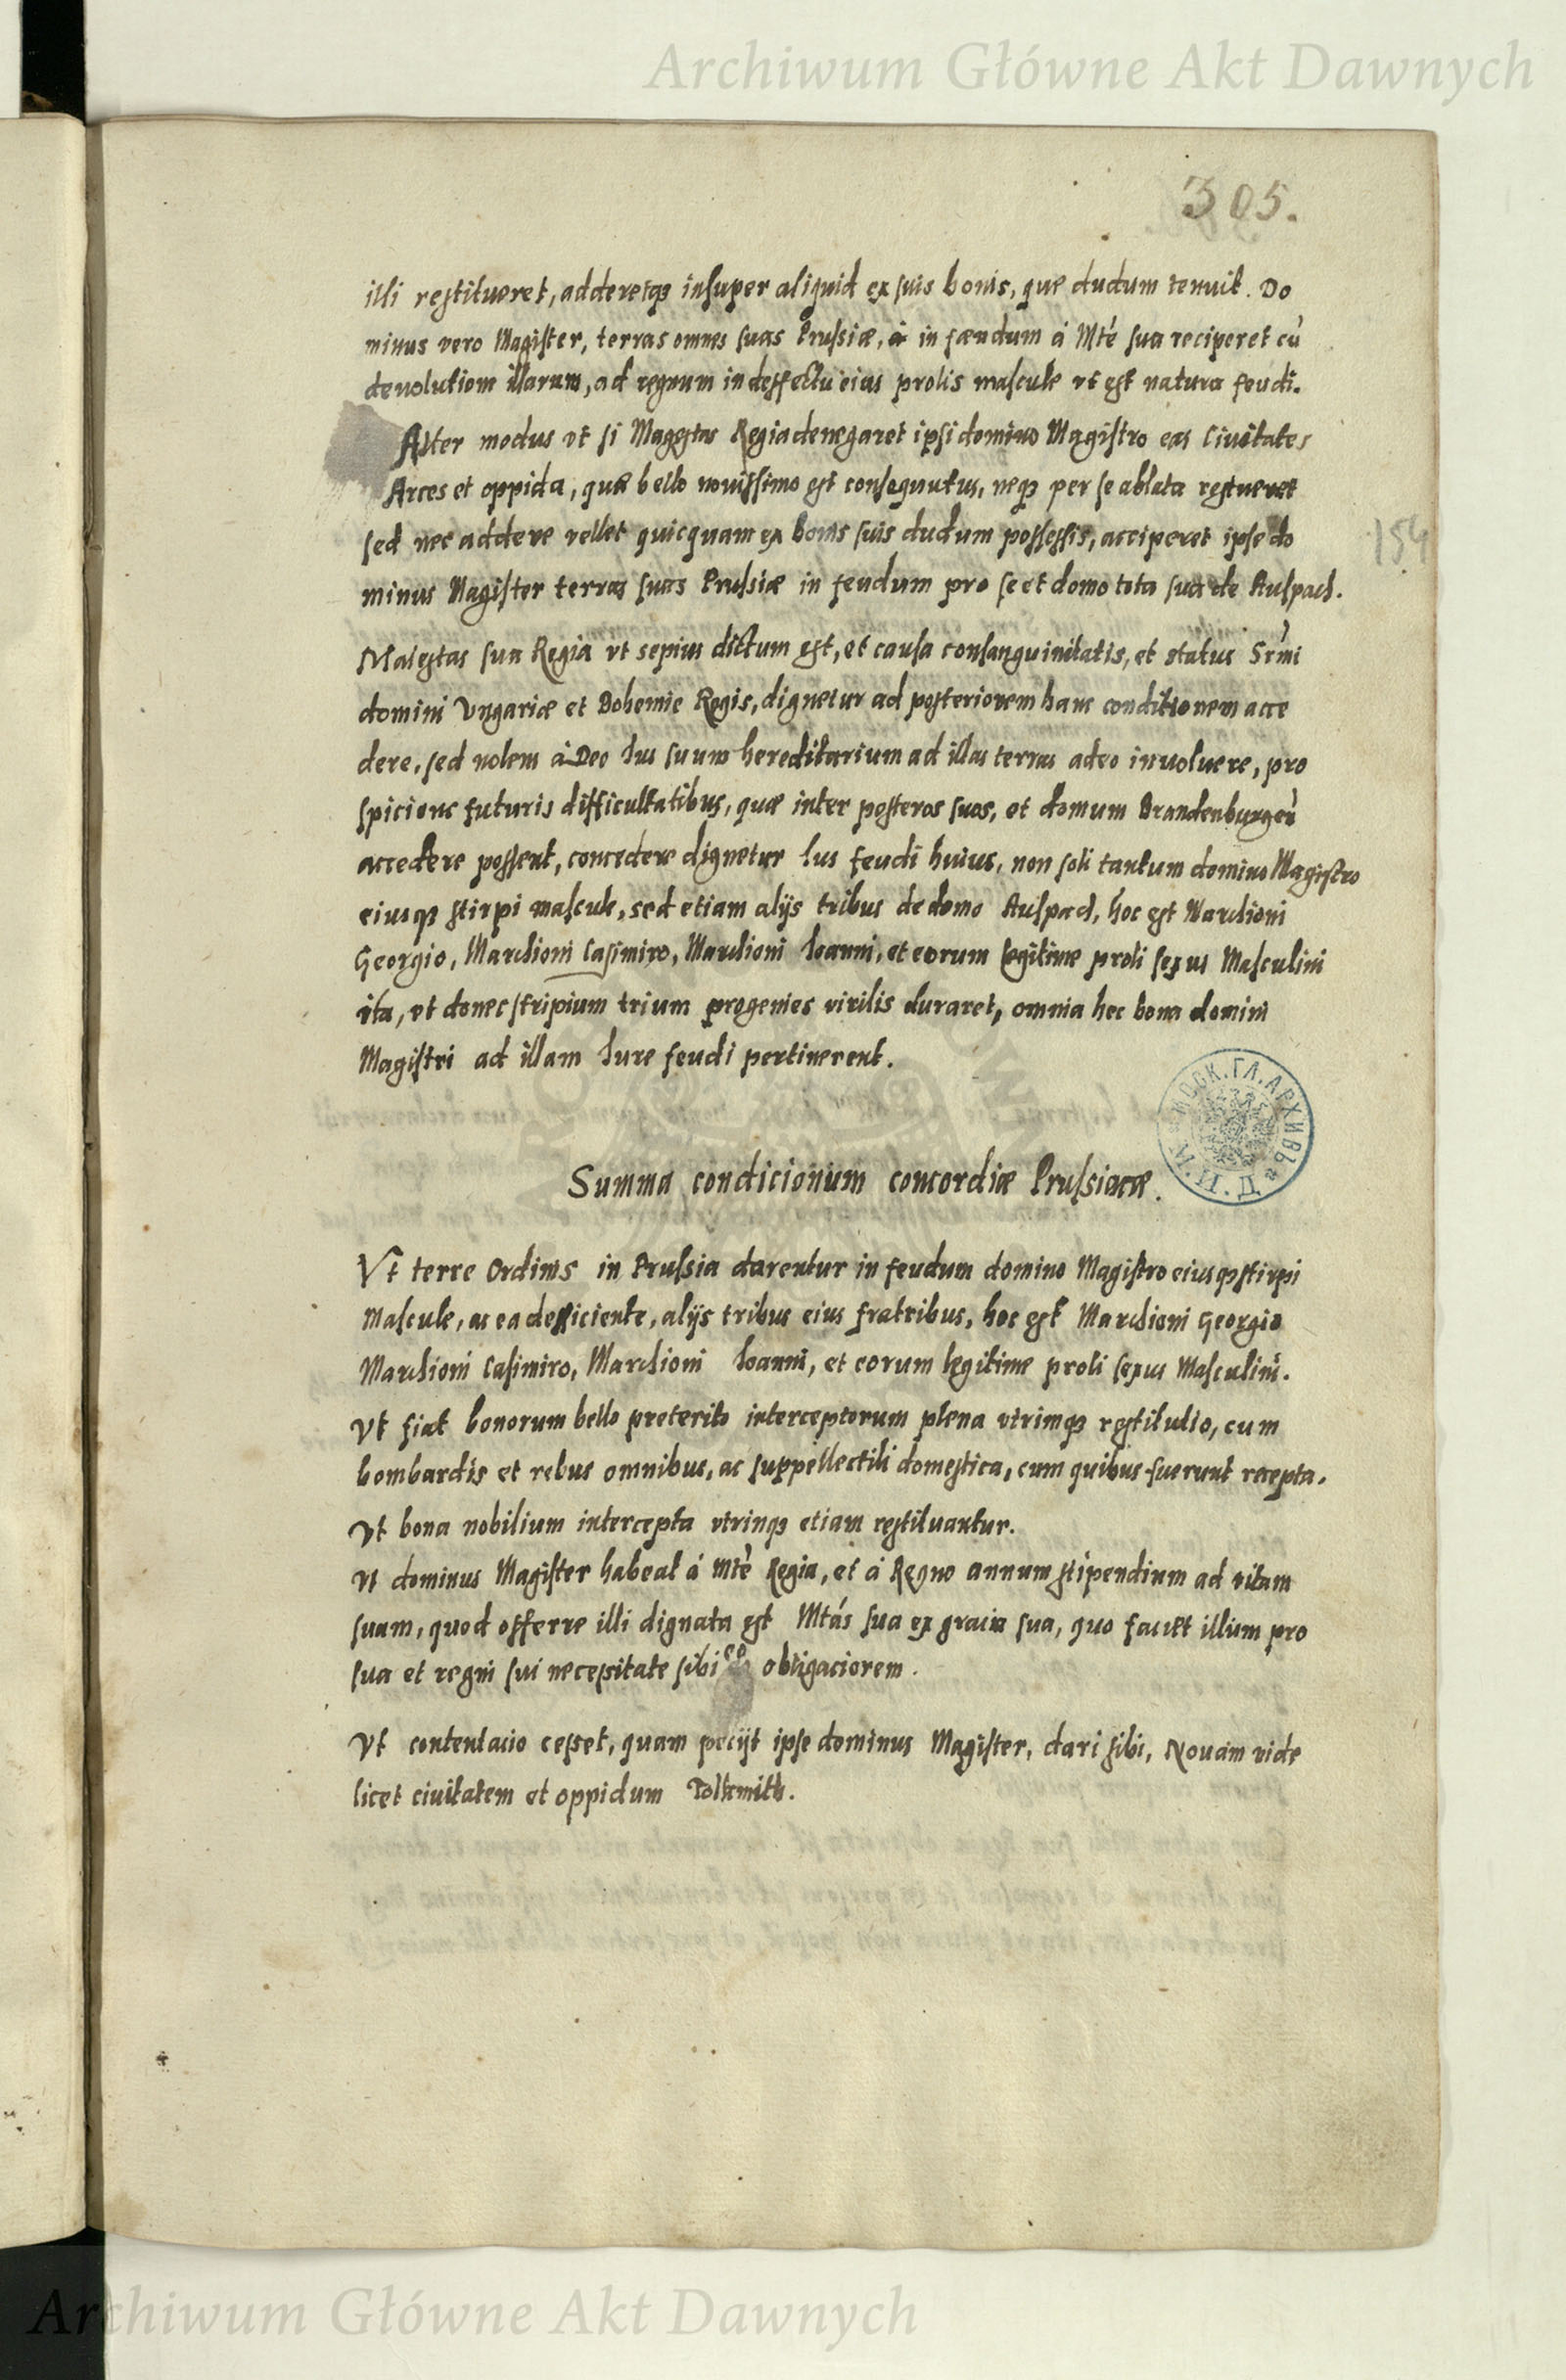 Archiwum Główne Akt Dawnych
305.
illi restitueret, adderetqȝ insuper aliquid ex suis bonis, que dudum tenuit. Do
minus vero Magister, terras omnes suas Prussiæ, in fœudum á Mtè sua reciperet cū
deuolutiom illarum, ad regnum in deffectu eius prolis mascule vt est natura feudi.
Alter modus vt si Magestas Regia denegaret ipsi domino Magistro eas Ciuitates
Arces et oppida, quæ bello nouissimo est consequutus, neqȝ per se ablata
sed nec addere vellet quicquam ex bonis suis dudum possessis, acciperet ipse do
154
minus Magister terras suas Prussiæ in feudum pro se et domo tota sua de Auspach.
Maiestas sua Regia vt sepius dictum est, et causa consanguinitatis, et status Sr̄mi
domini Vngariæ et Bohemie Regis, dignetur ad posteriorem hanc conditionem acce
dere, sed nolens á Deo Ius suum hereditarium ad illas terras adeo inuoluere, pro
spiciens futuris difficultatibus, quæ inter posteros suos, et domum Brandenburgen̄
accedere possent, concedere dignetur Ius feudi huius, non soli tantum domino Magistro
eiusqȝ stirpi mascule, sed etiam alijs tribus de domo Auspach, hoc est Marchioni
Georgio, Marchioni Casimiro, Marchioni Ioanni, et eorum legitime proli sexus Masculini
ita, vt donec stripium trium progenies virilis duraret, omnia hec bona domini
Magistri ad illam Iure feudi pertinerent.
МОСК. ГЛ. АРХИВЪ М.И.Д.
Summa condicionum concordiæ Prussiacæ.
Vt terre Ordinis in Prussia darentur in feudum domino Magistro eiusqȝ stirpi
Mascule, ac ea defficiente, alijs tribus eius fratribus, hoc est Marchioni Georgio
Marchioni Casimiro, Marchioni Ioanni, et eorum legitime proli sexus Masculini.
Vt fiat bonorum bello preterito interceptorum plena vtrimqȝ restitutio, cum
bombardis et rebus omnibus, ac suppellectili domestica, cum quibus fuerunt recepta.
Vt bona nobilium intercepta vtrinqȝ etiam restituantur.
Vt dominus Magister habeat á Mtè Regia, et á Regno annum stipendium ad vitam
suam, quod offerre illi dignata est Mtás sua ex gracia sua, quo faciet illum pro
sua et regni sui necessitate sibi eo obligaciorem.
Vt contentacio cesset, quam peciit ipse dominus Magister, dari sibi, Nouam vide
licet ciuitatem et oppidum Tolkmith.
Archiwum Główne Akt Dawnych